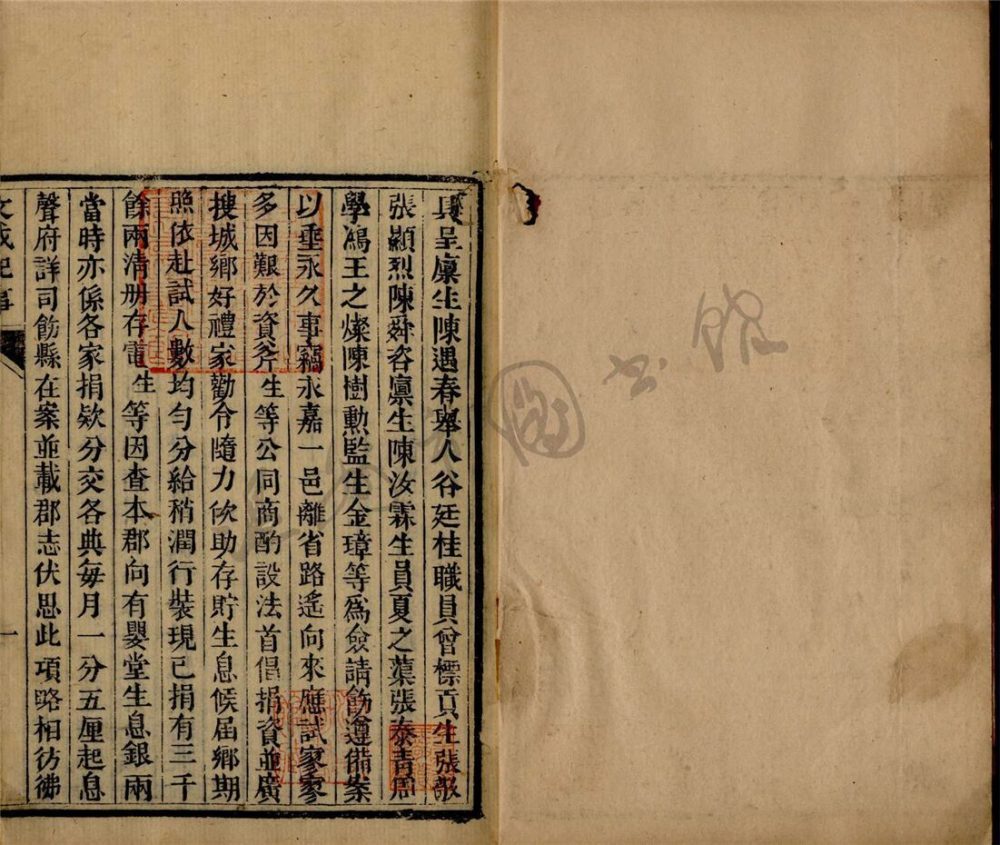 具呈廩生陳遇春舉人谷廷桂職員曾標貢生張
張顯烈陳舜咨廩生陳汝霖生員夏之蕖張泰青周
學鴻王之燦陳樹勳監生金璋等爲僉請飭遵備案
以垂永久事竊永嘉一邑離省路遙向來應試家寥
多因艱於資斧生等公同商酌設法首倡捐資並廣
搜城鄉好禮家勸令隨力佽助存貯生息候屆鄉期
照依赴試人數均勻分給稍潤行裝現已捐有三千
餘兩清册存電生等因查本郡向有嬰堂生息銀兩
當時亦係各家捐欵分交各典每月一分五厘起息
聲府詳司飭縣在案並載郡志伏思此項略相彷彿
文成紀事
一
圖書館